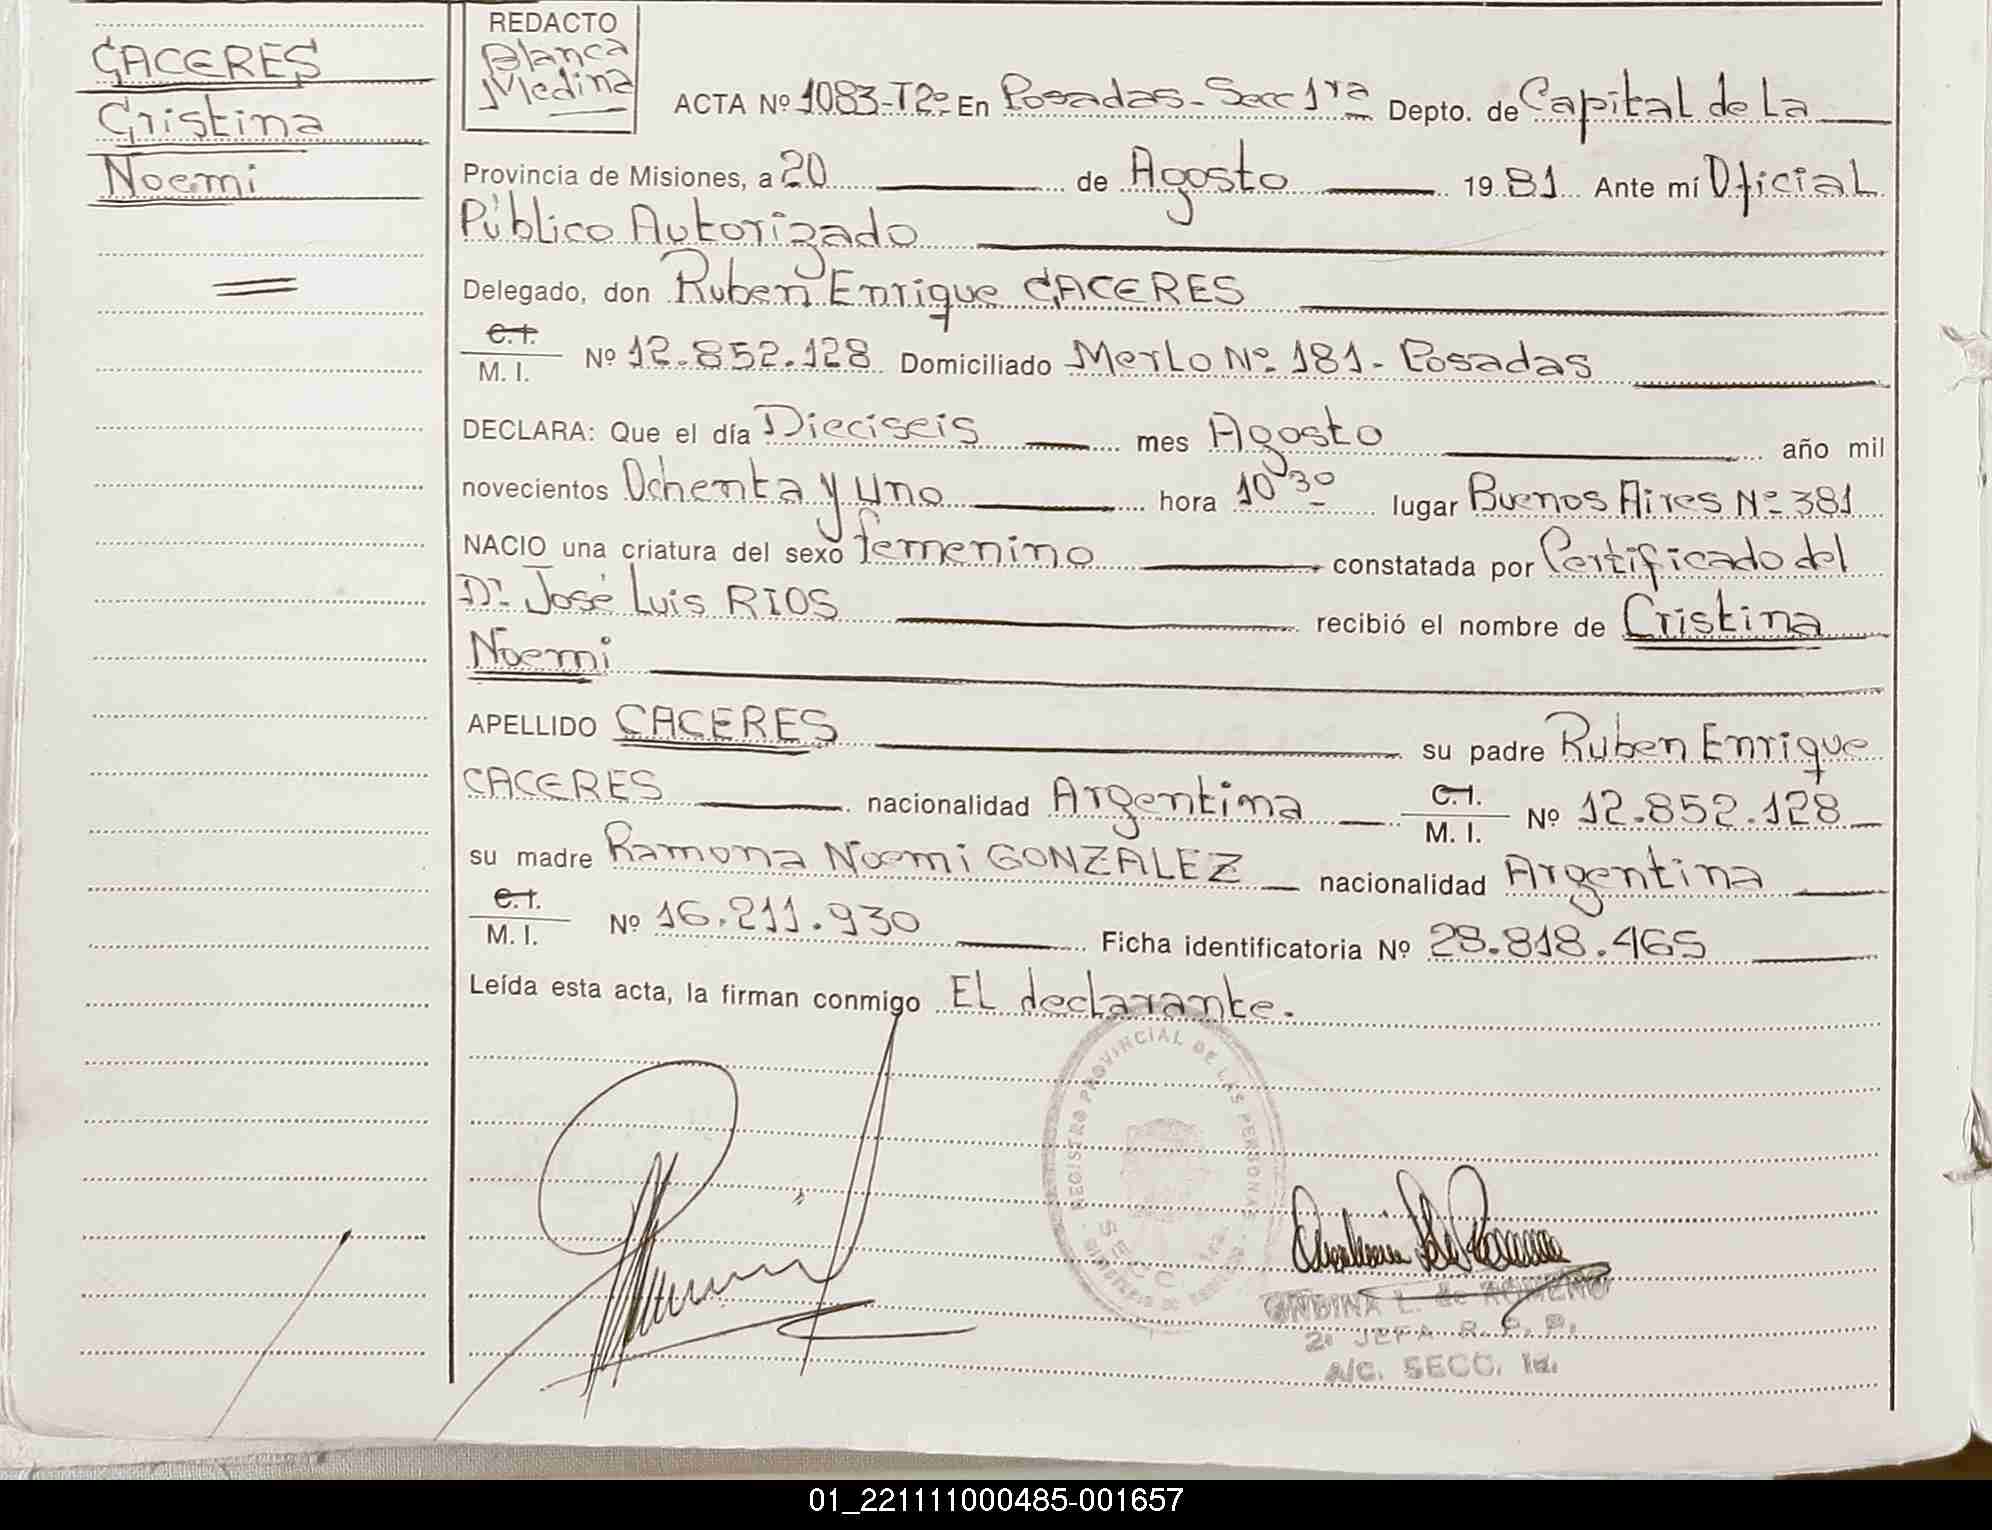 CACERES
Cristina
Noemi
REDACTO
Blanca
Medina
ACTA Nº 1083-T2º En Posadas-Secc 1ra Depto. de Capital de La
Provincia de Misiones, a 20 de Agosto 1981 Ante mí Oficial
Público Autorizado
Delegado, don Ruben Enrique CACERES
C.I.
M. I. Nº 12.852.128 Domiciliado Merlo Nº 181- Posadas
DECLARA: Que el día Dieciseis mes Agosto año mil
novecientos Ochenta y Uno hora 10 30 lugar Buenos Aires Nº 381
NACIO una criatura del sexo femenino constatada por Certificado del
Dr. José Luis RIOS recibió el nombre de Cristina
Noemi
APELLIDO CACERES su padre Ruben Enrique
CACERES nacionalidad Argentina C.I. M. I. Nº 12.852.128
su madre Ramona Noemi GONZALEZ nacionalidad Argentina
C.I.
M. I. Nº 16.211.930 Ficha identificatoria Nº 28.818.465
Leída esta acta, la firman conmigo El declarante.
REGISTRO PROVINCIAL DE LAS PERSONAS
SECC. 1ra.
MINISTERIO DE GOBIERNO
ONDINA L. de
2ª JEFA R. P. P.
A/C. SECC. 1a.
01_221111000485-001657